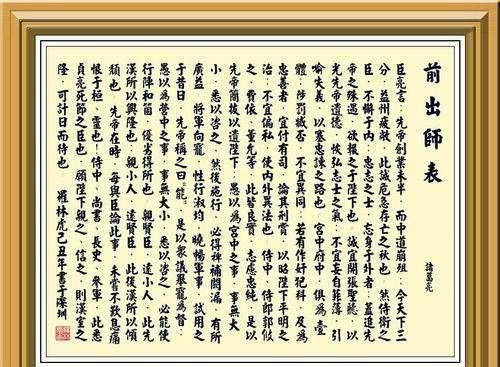 前出師表
諸葛亮
臣亮言:先帝創業未半,而中道崩殂;今天下三
分,益州疲敝,此誠危急存亡之秋也。然侍衛之
臣,不懈于內;忠志之士,忘身于外者:蓋追先
帝之殊遇,欲報之于陛下也。誠宜開張聖聽,以
光先帝遺德,恢弘志士之氣;不宜妄自菲薄,引
喻失義,以塞忠諫之路也。宮中府中,俱為壹
體;陟罰臧否,不宜異同:若有作奸犯科,及為
忠善者,宜付有司,論其刑賞,以昭陛下平明之
治;不宜偏私,使內外異法也。侍中、侍郎郭攸
之、費依、董允等,此皆良實,志慮忠純,是以
先帝簡拔以遺陛下:愚以為宮中之事,事無大
小,悉以咨之,然後施行,必得裨補闕漏,有所
廣益。將軍向寵,性行淑均,曉暢軍事,試用之
于昔日,先帝稱之曰"能",是以衆議舉寵為督:
愚以為營中之事,事無大小,悉以咨之,必能使
行陣和笛,優劣得所也。親賢臣,遠小人,此先
漢所以興隆也;親小人,遠賢臣,此後漢所以傾
頹也。先帝在時,每與臣論此事,未嘗不歎息痛
恨于桓、靈也!侍中、尚書、長史、參軍,此悉
貞亮死節之臣也,願陛下親之、信之,則漢室之
隆,可計日而待也。 羅林虎己丑年書于深圳